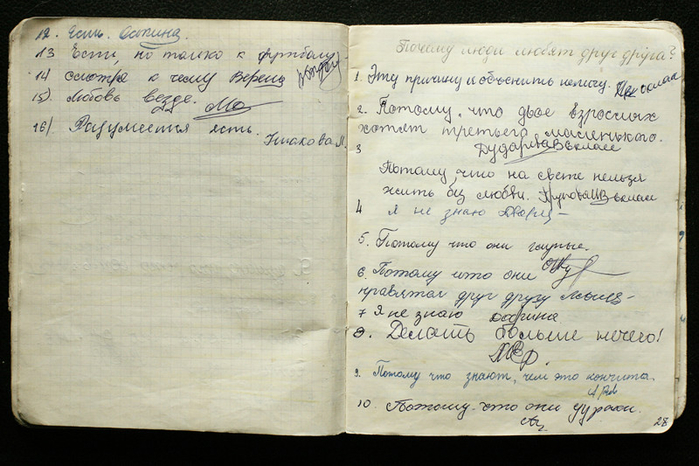 12. Есть.
13 Есть, но только к футболу.
14 смотря к чему
15) Любовь везде.
16). Разумеется есть.
Ушакова
Почему люди любят друг друга?
1. Эту причину и объяснить нельзя.
2. Потому, что двое взрослых
хотят третьего маленького.
3
Потому, что на свете нельзя
жить без любви.
4 Я не знаю
5. Потому что они глупые.
6. Потому что они
нравятся друг другу
7 Я не знаю
8. Делать больше нечего!
9. Потому что знают, чем это кончится.
10 Потому что они дураки.
28